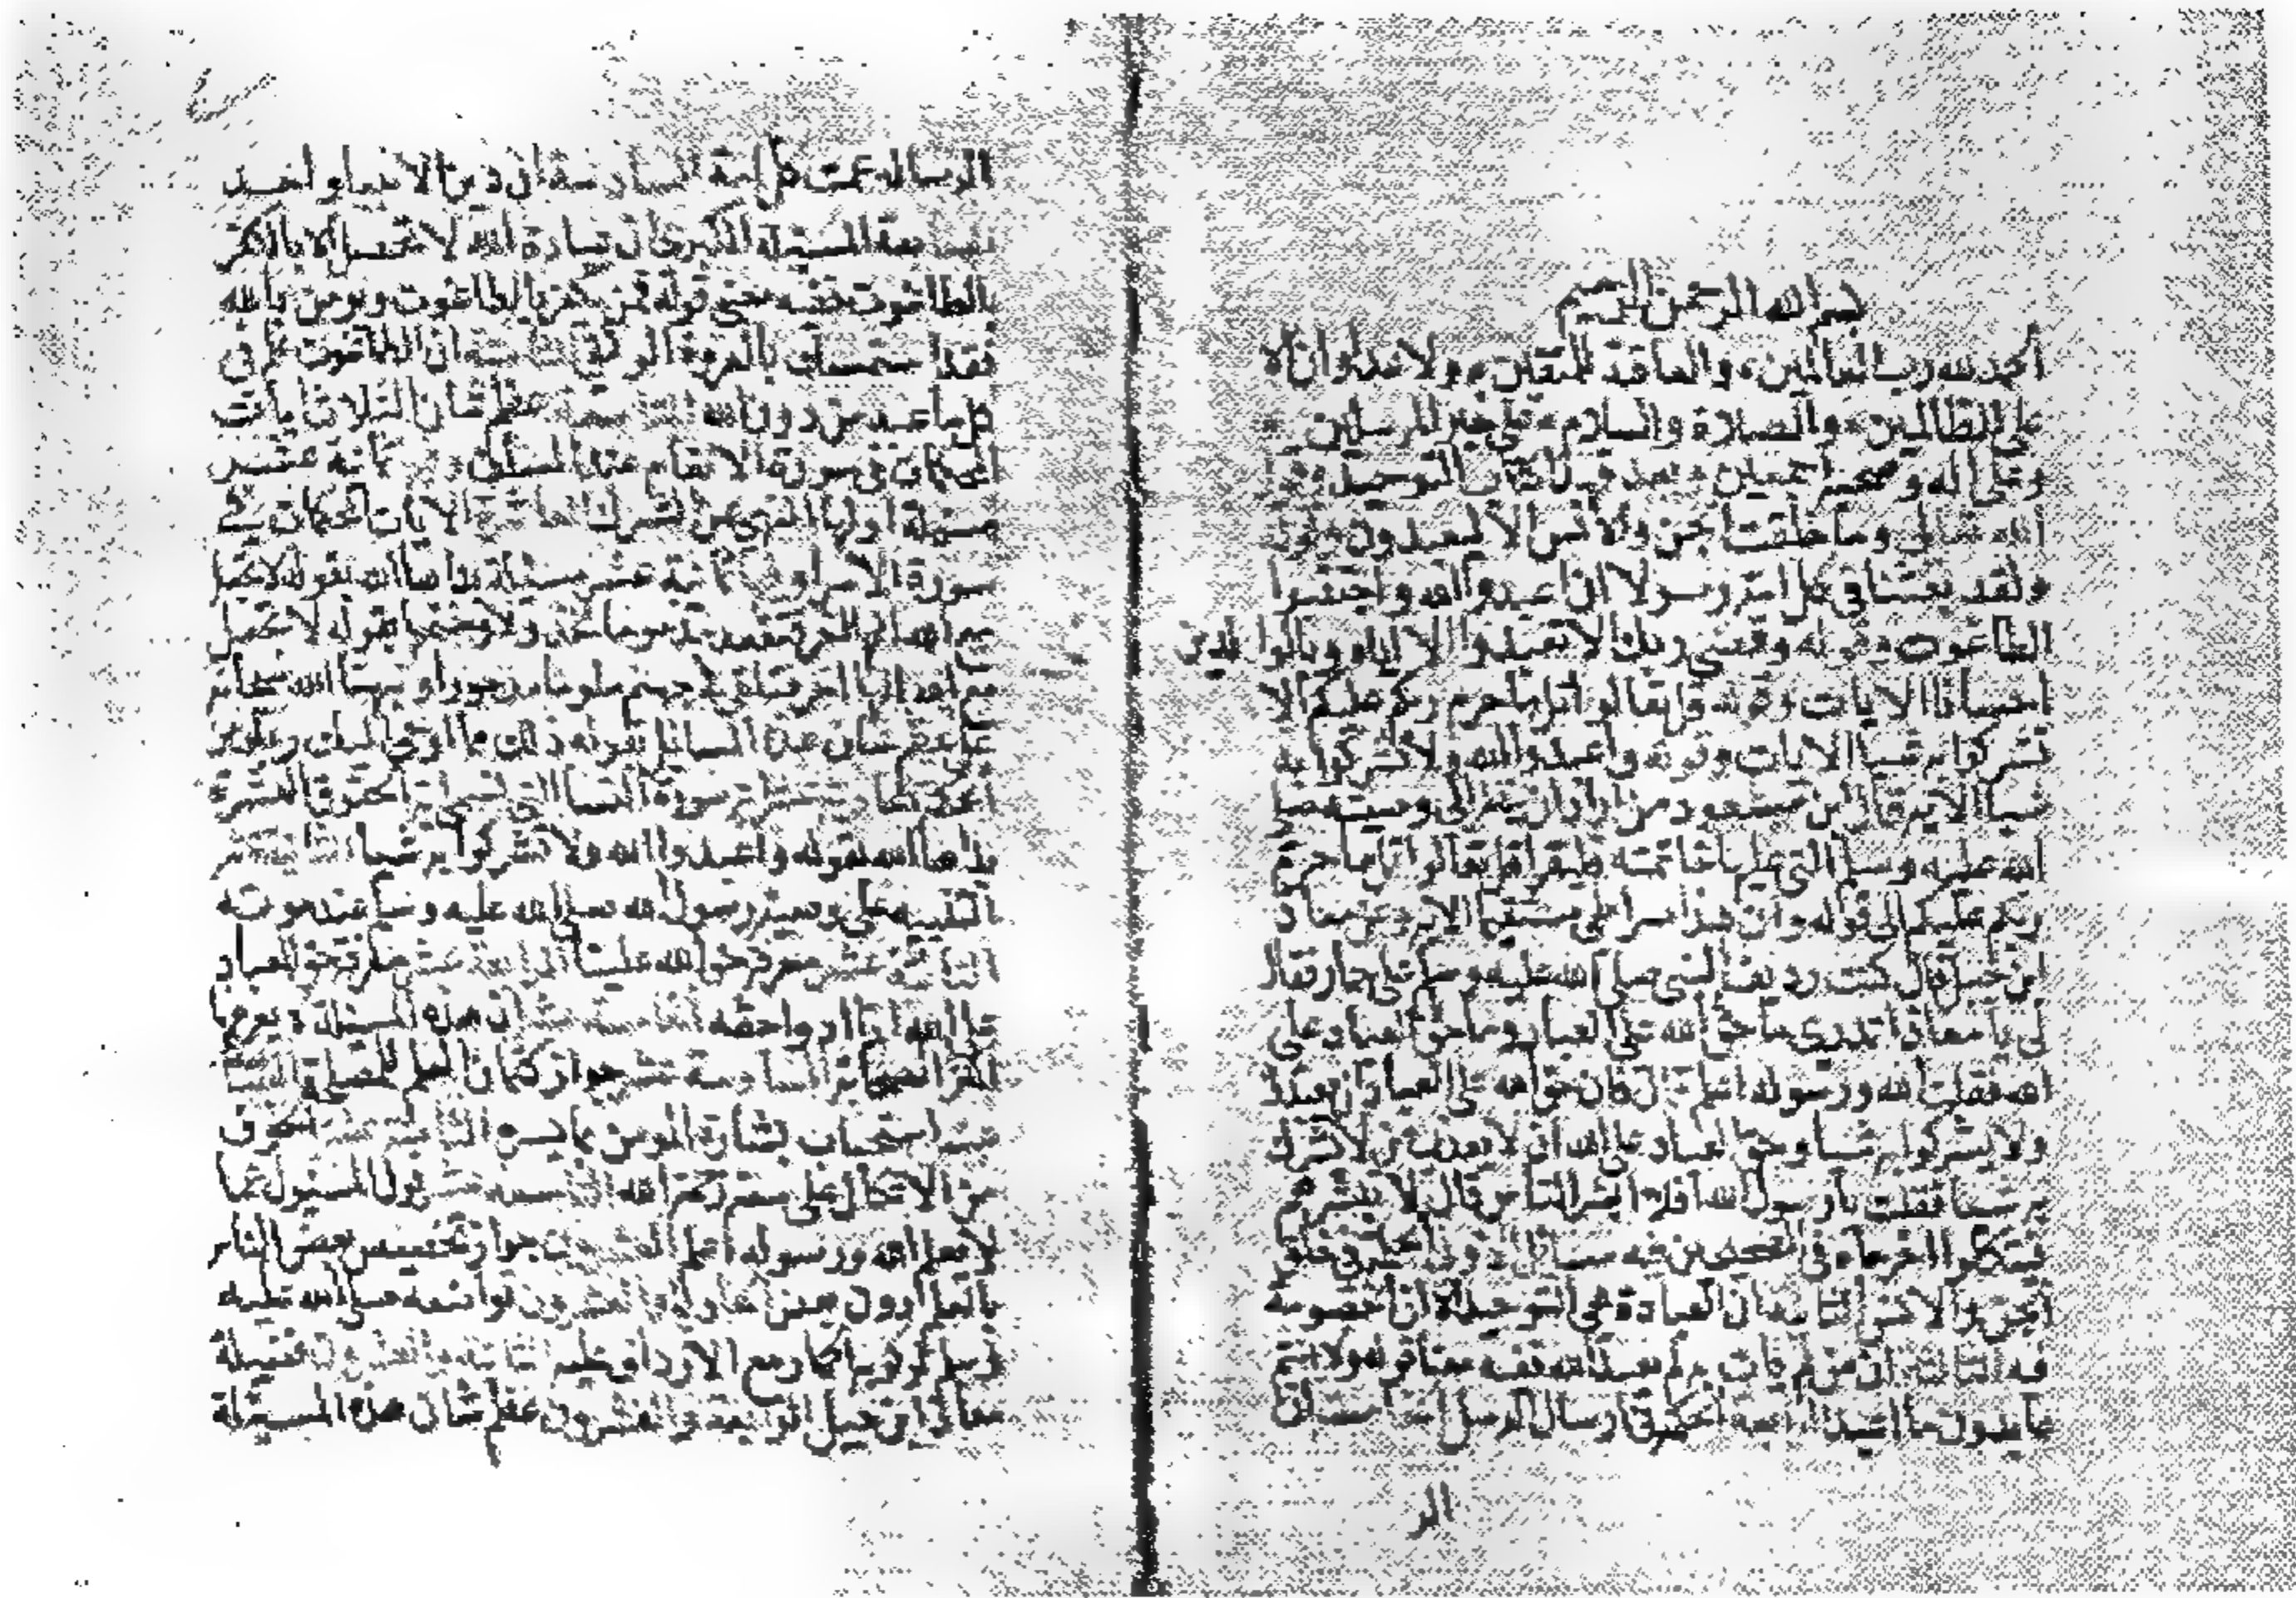 بسم الله الرحمن الرحيم
الحمد لله رب العالمين والعاقبة للمتقين ولا عدوان الا
على الظالمين والصلاة والسلام على خير المرسلين
وعلى اله وصحبه اجمعين وبعد كتاب التوحيد
الله تعالى وما خلقت الجن والانس الا ليعبدون وقوله
ولقد بعثنا في كل امة رسولا ان اعبدوا الله واجتنبوا
الطاغوت وقوله وقضى ربك الا تعبدوا الا اياه وبالوالدين
احسانا الايات وقوله قل تعالوا اتل ما حرم ربكم عليكم الا
تشركوا به شيا الايات وقوله واعبدوا الله ولا تشركوا به
شيا الاية قال ابن مسعود من اراد ان ينظر الى وصية محمد صلى
الله عليه وسلم التي عليها خاتمه فليقرا قل تعالوا اتل ما حرم
ربكم عليكم الى قوله وان هذا صراطي مستقيما الاية وعن معاذ
ابن جبل قال كنت رديف النبي صلى الله عليه وسلم على حمار فقال
لي يا معاذ اتدري ما حق الله على العباد وما حق العباد على
الله فقلت الله ورسوله اعلم قال فان حق الله على العباد ان يعبدوه
ولا يشركوا به شيا وحق العباد على الله ان لا يعذب من لا يشرك
به شيا فقلت يا رسول الله افلا ابشر الناس قال لا تبشرهم
فيتكلوا اخرجاه في الصحيحين فيه مسائل الاولى الحكمة في خلق
الجن والانس الثانية ان العبادة هي التوحيد لان الخصومة
فيه الثالثة ان من لم يات به لم يعبد الله ففيه معنى قوله ولا انتم
عابدون ما اعبد الرابعة الحكمة في ارسال الرسل الخامسة ان
الر
الرسالة عمت كل امة السادسة ان دين الانبياء واحد
السابعة المسئلة الكبرى ان عبادة الله لا تحصل الا بالكفر
بالطاغوت ففيه معنى قوله فمن يكفر بالطاغوت ويومن بالله
فقد استمسك بالعروة الوثقى الثامنة ان الطاغوت عام في
كل ما عبد من دون الله التاسعة عظم شان الثلاث ايات
المحكمات في سورة الانعام عند السلف وفيها عشر
مسئلة اولها النهي عن الشرك العاشرة الايات المحكمات في
سورة الاسرا وفيها ثمانية عشر مسئلة بداها الله بقوله لا تجعل
مع الله الها اخر فتقعد مذموما مخذولا وختمها بقوله لا تجعل
مع الله الها اخر فتلقى في جهنم ملوما مدحورا ونبهنا الله سبحانه
على عظم شان هذه المسائل بقوله ذلك مما اوحى اليك ربك من
الحكمة الحادية عشر اية سورة النسا التي تسمى اية الحقوق العشرة
بداها الله بقوله واعبدوا الله ولا تشركوا به شيا الثانية عشر
التنبيه على وصية رسول الله صلى الله عليه وسلم عند موته
الثالثة عشر معرفة حق الله علينا الرابعة عشر معرفة حق العباد
على الله اذا ادوا حقه الخامسة عشر ان هذه المسئلة لا يعرفها
اكثر الصحابة السادسة عشر جواز كتمان العلم للمصلحة السابعة
عشر استحباب بشارة المومن بما يسره الثامنة عشر الخوف
من الاتكال على سعة رحمة الله التاسعة عشر قول المسئول عما
لا يعلم الله ورسوله اعلم العشرون جواز تخصيص بعض الناس
بالعلم دون بعض الحادية والعشرون تواضعه صلى الله عليه
وسلم لركوبه الحمار مع الارداف عليه الثالثة والعشرون فضيلة
معاذ ابن جبل الرابعة والعشرون عظم شان هذه المسئلة